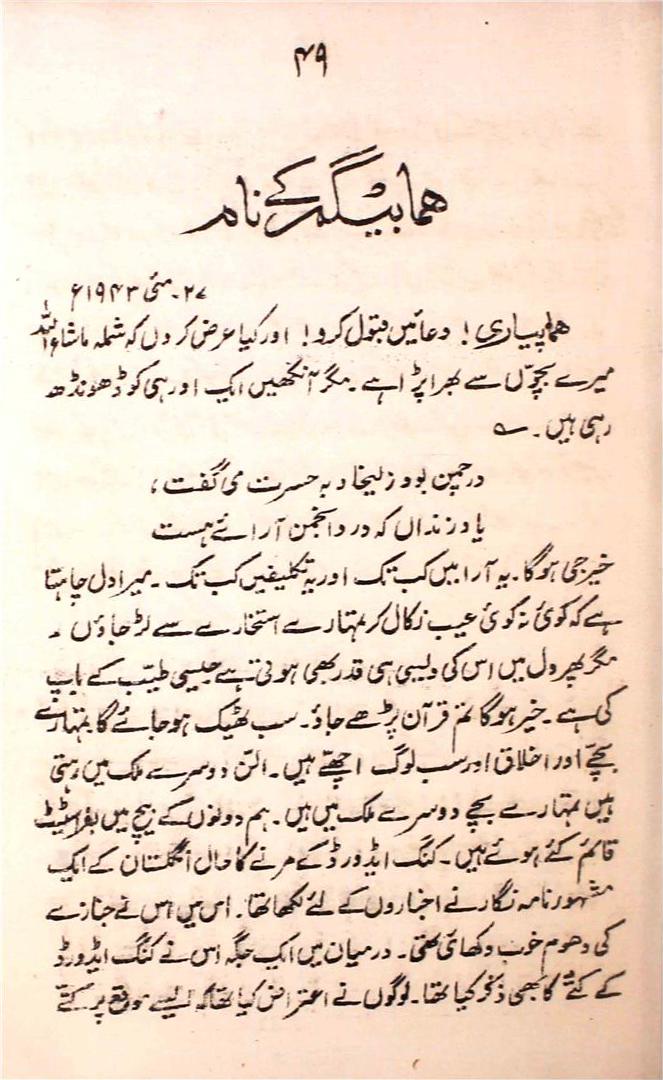 ۴۹
ہما بیگم کے نام
۲۷۔ مئی ۱۹۴۳ء
ہما پیاری! دعائیں قبول کرو! اور کیا عرض کروں کہ شملہ ماشاء اللہ
میرے بچوّں سے بھرا پڑا ہے ۔ مگر آنکھیں ایک اور ہی کو ڈھونڈھ
رہی ہیں ۔ ؎
در چمن بود زلیخا و بہ حسرت می گفت ،
یاد زنداں کہ در و انجمن آرائے ہست
خیر جی ہوگا۔ یہ آرا بیں کب تک اور یہ تکلیفیں کب تک ۔ میرا دل چاہتا
ہے کہ کوئی نہ کوئی عیب نکال کر تمہارے استخارے سے لڑ جاؤں ۔
مگر پھر دل میں اس کی ویسی ہی قدر بھی ہوتی ہے جیسی طیّب کے باپ
کی ہے ۔ خیر ہوگا تم قرآن پڑھے جاؤ۔ سب ٹھیک ہو جائے گا تمہارے
بچّے اور اخلاق اور سب لوگ اچھّے ہیں ۔ الن دوسرے ملک میں رہتی
ہیں تمہارے بچے دوسرے ملک میں ہیں ۔ ہم دونوں کے بیچ میں بفراسٹیٹ
قائم کئے ہوئے ہیں ۔ کنگ ایڈورڈ کے مرنے کا حال انگلستان کے ایک
مشہور نامہ نگار نے اخباروں کے لئے لکھا تھا ۔ اس میں اس نے جنازے
کی دھوم خوب دکھائی تھی ۔ درمیان میں ایک جگہ اس نے کنگ ایڈورڈ
کے کتّے کا بھی ذکر کیا تھا ۔ لوگوں نے اعتراض کیا تھا کہ ایسے موقع پر کتے